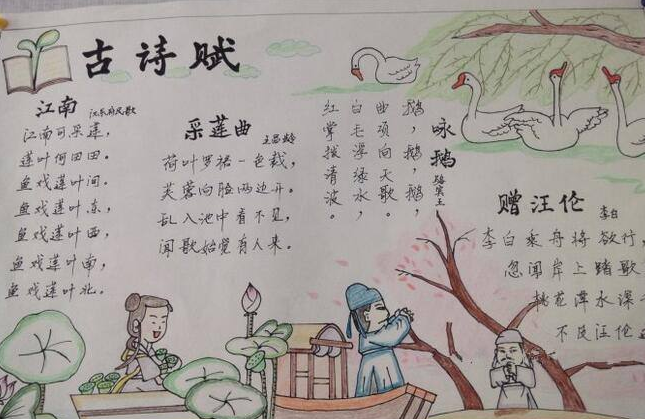 古诗赋
江南
江南可采莲，
莲叶何田田。
鱼戏莲叶间。
鱼戏莲叶东，
鱼戏莲叶西，
鱼戏莲叶南，
鱼戏莲叶北。
采莲曲
王昌龄
荷叶罗裙一色裁，
芙蓉向脸两边开。
乱入池中看不见，
闻歌始觉有人来。
咏鹅
骆宾王
鹅，鹅，鹅，
曲项向天歌。
白毛浮绿水，
红掌拨清波。
赠汪伦
李白
李白乘舟将欲行，
忽闻岸上踏歌
桃花潭水深
不及汪伦